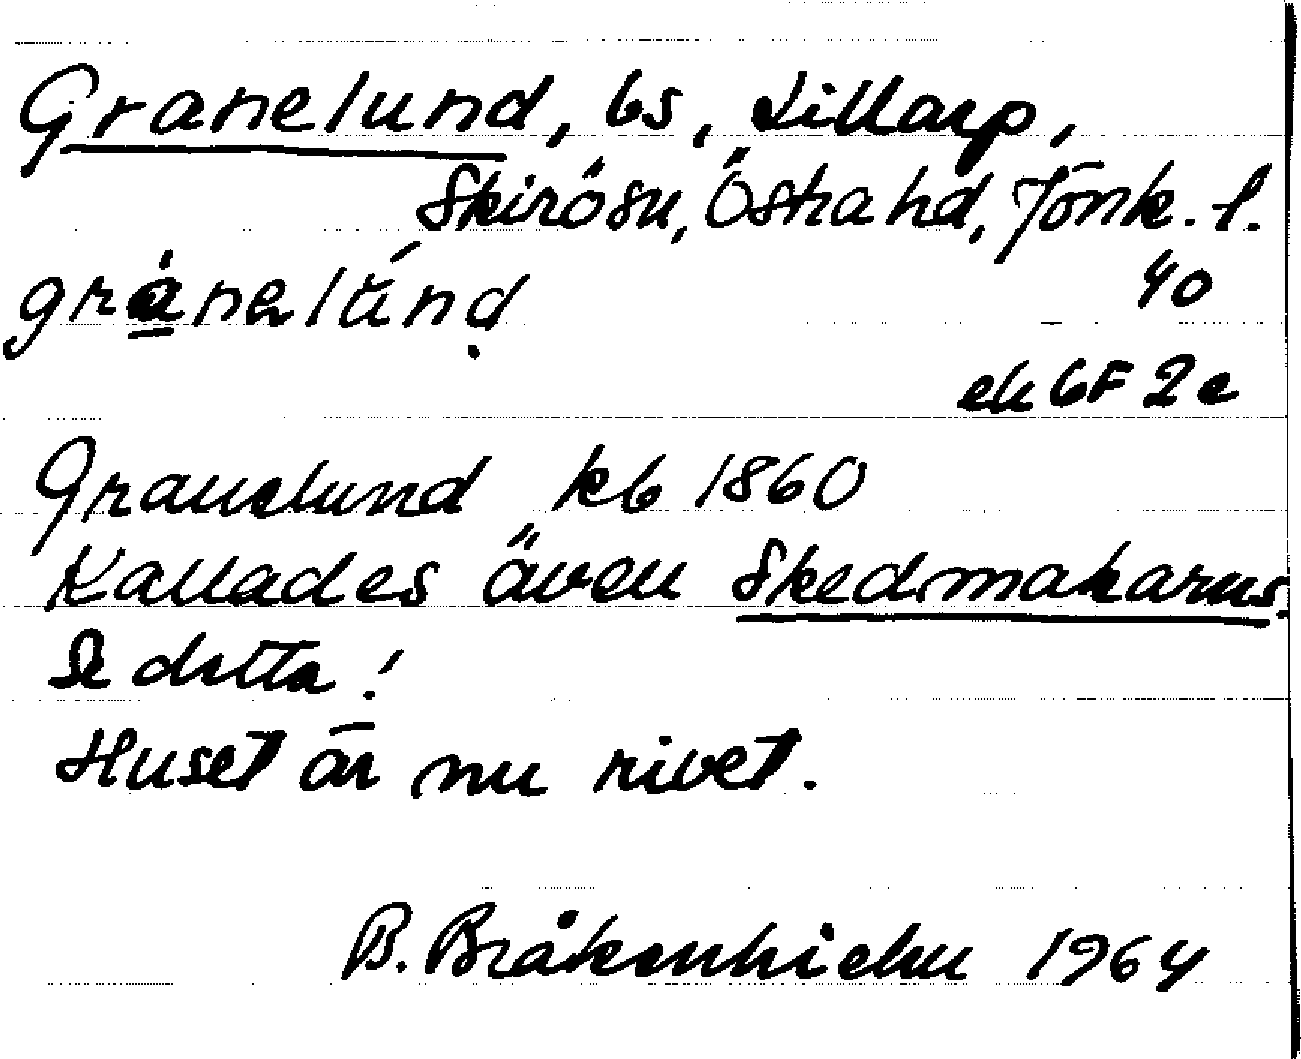 Granelund, bs, Lillarp,
Skirö sn, Östra hd, Jönk. l.
grànelúnd
40
ek 6F 2e
Granelund kb 1860
Kallades även Skedmakarns.
Se detta!
Huset är nu rivet.
B. Bråkenhielm 1964